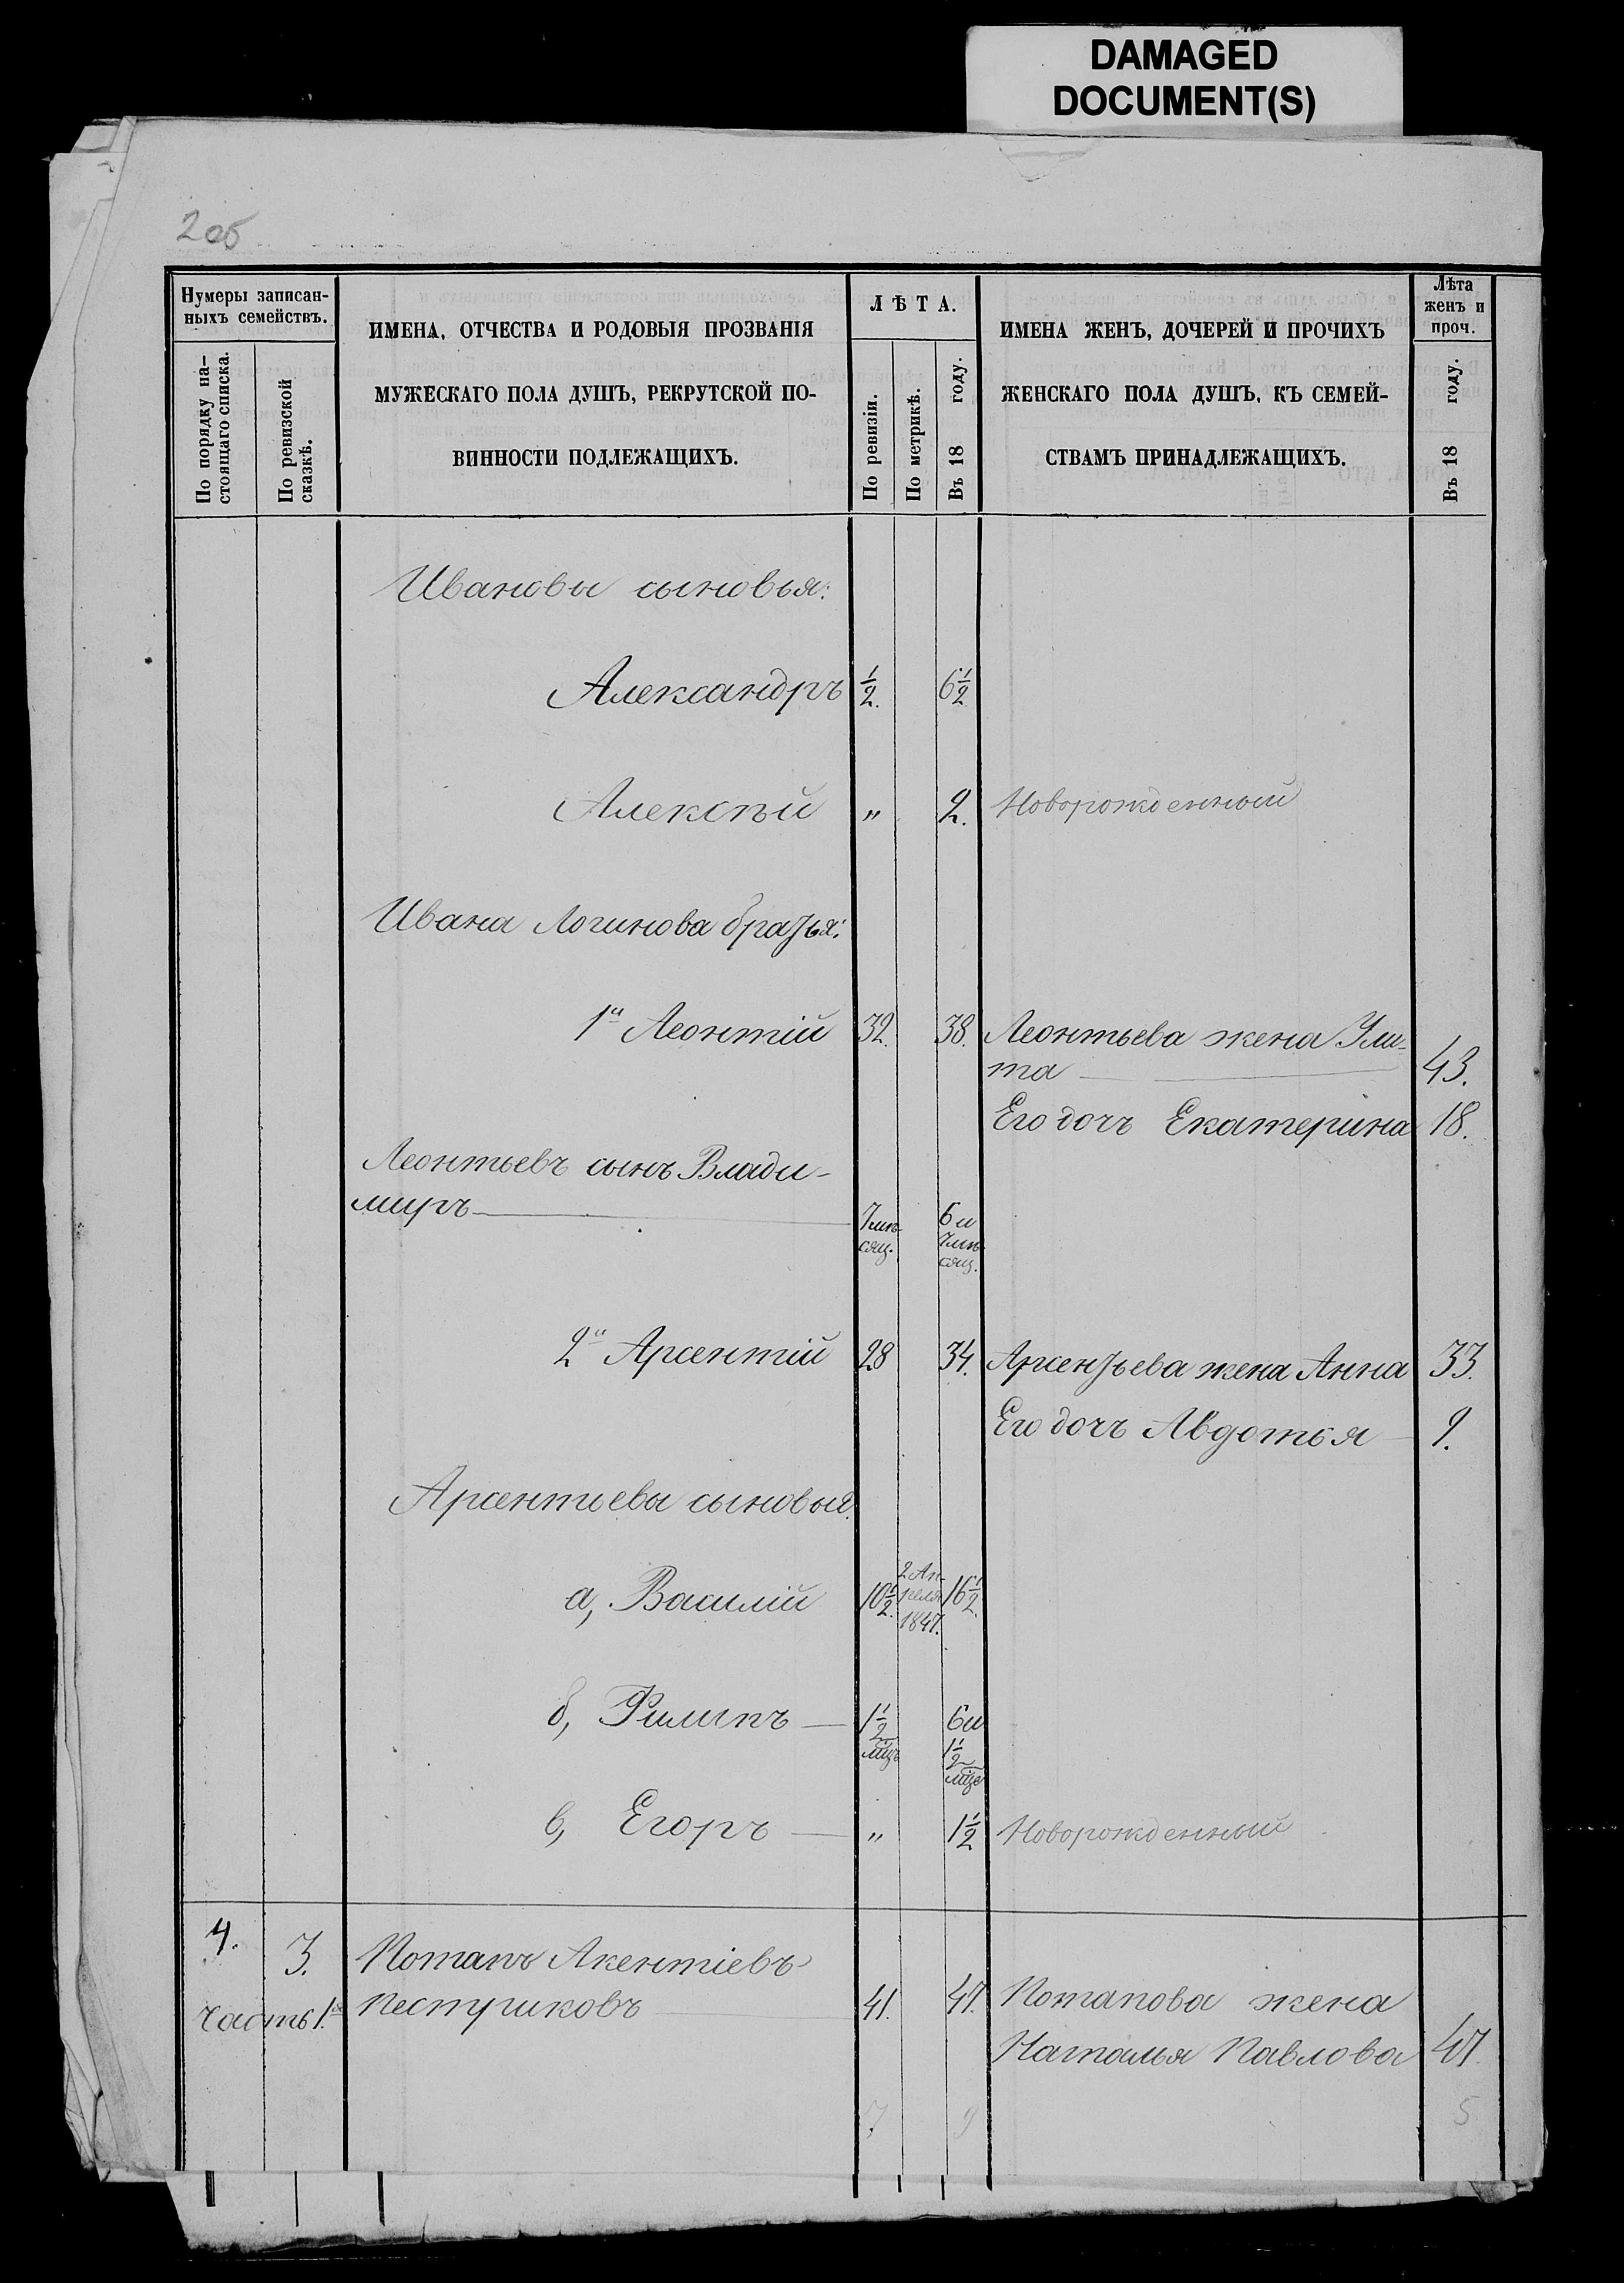 DAMAGED
DOCUMENT(S)
2об
Нумеры записан-
ныхъ семействъ.
По порядку на-
стоящаго списка.
По ревизской
сказкѣ.
ИМЕНА, ОТЧЕСТВА И РОДОВЫЯ ПРОЗВАНІЯ
МУЖЕСКАГО ПОЛА ДУШЪ, РЕКРУТСКОЙ ПО-
ВИННОСТИ ПОДЛЕЖАЩИХЪ.
ЛѢТА.
По ревизіи.
По метрикѣ.
Въ 18 году.
ИМЕНА ЖЕНЪ, ДОЧЕРЕЙ И ПРОЧИХЪ
ЖЕНСКАГО ПОЛА ДУШЪ, КЪ СЕМЕЙ-
СТВАМЪ ПРИНАДЛЕЖАЩИХЪ.
Лѣта
женъ и
проч.
Въ 18 году.
Ивановы сыновья:
Александръ 1/2. 6 1/2
Алексѣй " 2. Новорожденный
Ивана Логинова братья:
1й Леонтій 32. 38. Леонтьева жена Ули-
та 43.
Его дочь Екатерина 18.
Леонтьевъ сынъ Влади-
миръ
7 мѣ-
сяц.
6 и
7 мѣ-
сяц.
2й Арсентій 28 34. Арсентьева жена Анна 33.
Его дочь Авдотья 9.
Арсентьевы сыновья.
а, Василій 10 1/2. 2 Ап-
реля
1847. 16 1/2.
б, Филипъ 1 1/2
мцъ
6 и
1 1/2
мце
в, Егоръ " 1 1/2 Новорожденный
4. 3. Потапъ Акентіевъ
часть 1я Пестушковъ 41. 47. Потапова жена
Наталья Павлова 47.
7 9 5